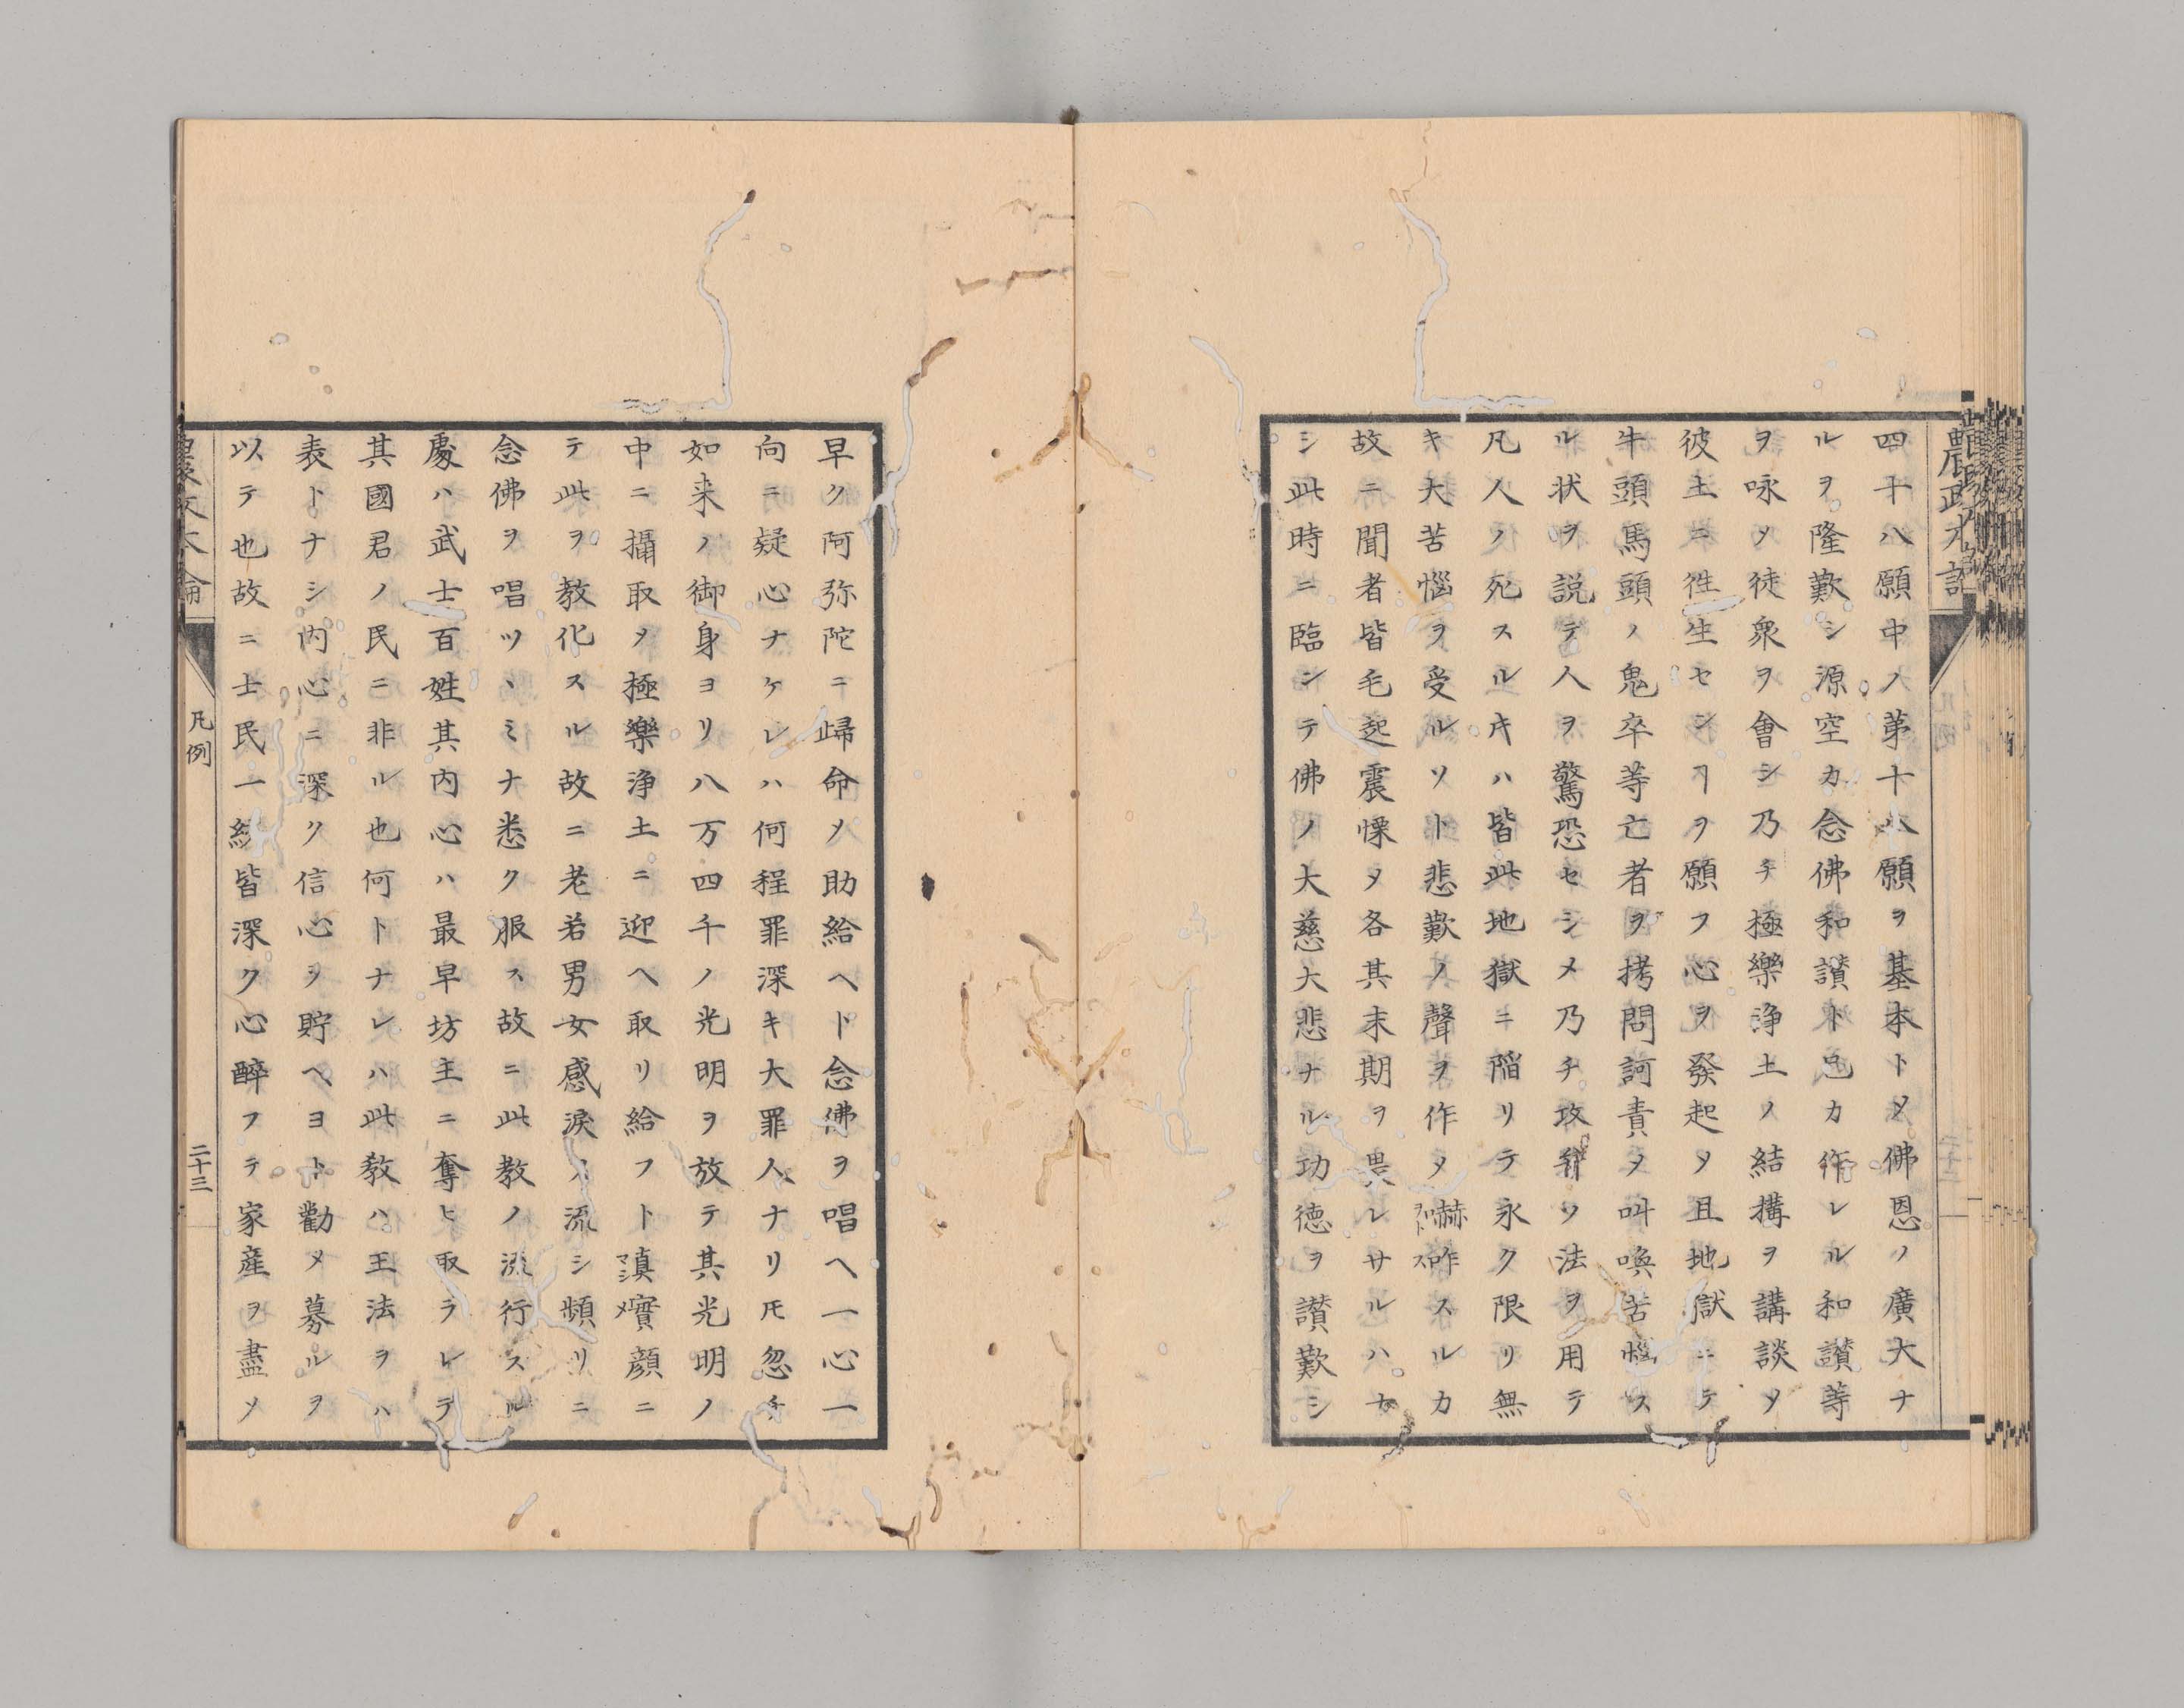 四十八願中ノ第十八願ヲ基本トメ佛恩ノ廣大ナ
ルヲ隆歎シ源空カ念佛和讃ト皀カ作レル和讃等
ヲ咏メ徒衆ヲ會シ乃チ極樂浄土ノ結構ヲ講談メ
彼土ニ徃生センヿヲ願フ心ヲ發起メ且地獄ニテ
牛頭馬頭ノ鬼卒等亡者ヲ拷問訶責メ叫喚苦惱ス
ル状ヲ説テ人ヲ驚恐セシメ乃チ攻ノ法ヲ用テ
凡人ノ死スル片ハ皆此地獄ニ陷リテ永ク限リ無
キ大苦惱ヲ受ルソト悲歎ノ聲ヲ作メ嚇咋スルカ
ヲトス
故ニ聞者皆毛起震慄メ各其末期ヲ畏レサルハナ
シ此時ニ臨ンテ佛ノ大慈大悲ナル功徳ヲ讃歎シ
早ク阿弥陀ニ歸命メ助給ヘト念佛ヲ唱ヘ一心一
向ニ疑心ナケレハ何程罪深キ大罪人ナリ𪜈忽チ
如来ノ御身ヨリ八万四千ノ光明ヲ放テ其光明ノ
中ニ攝取メ極樂浄土ニ迎ヘ取リ給フト嗔實顔ニ
マジメ
テ此ヲ教化スル故ニ老若男女感涙ヲ流シ頻リニ
念佛ヲ唱ツヽミナ悉ク服ス故ニ此教ノ流行スル
處ハ武士百姓其内心ハ最早坊主ニ奪ヒ取ラレテ
其國君ノ民ニ非ル也何トナレハ此教ハ王法ヲハ
表トナシ内心ニ深ク信心ヲ貯ヘヨト勸メ募ルヲ
以テ也故ニ士民一統皆深ク心醉フテ家産ヲ盡メ
凡例
二十三